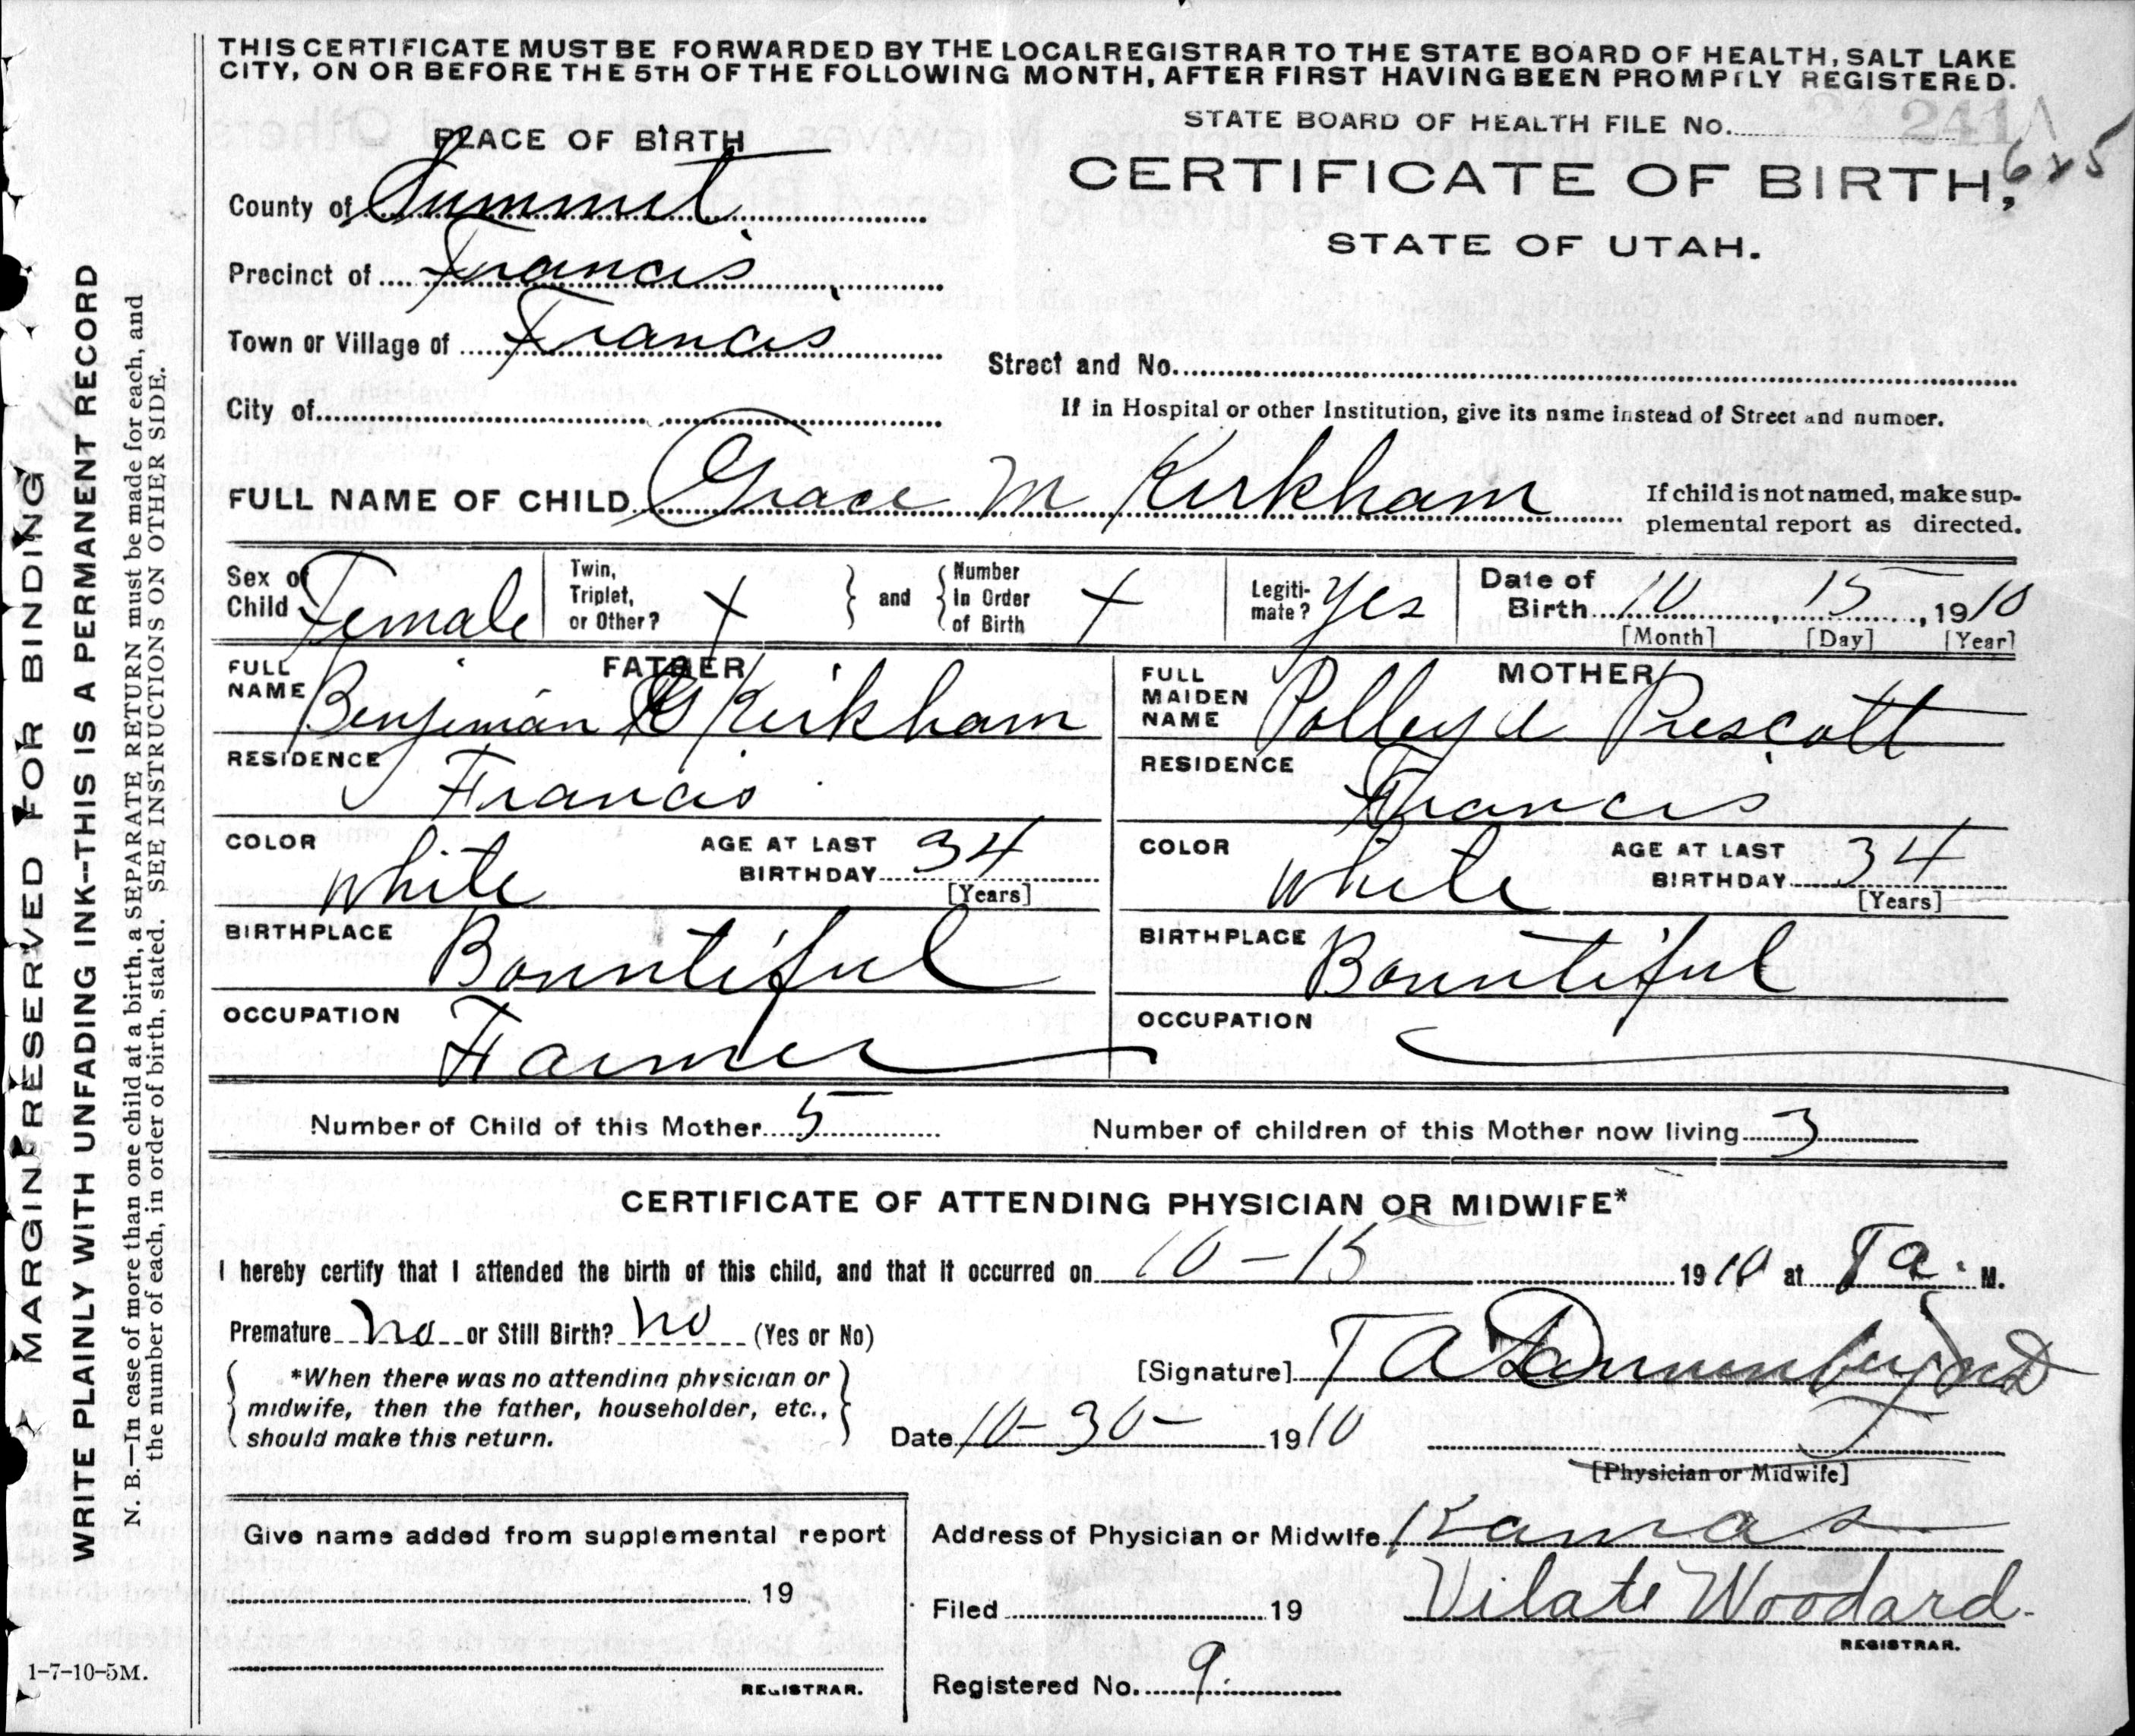 THIS CERTIFICATE MUST BE FORWARDED BY THE LOCAL REGISTRAR TO THE STATE BOARD OF HEALTH, SALT LAKE
CITY, ON OR BEFORE THE 5TH OF THE FOLLOWING MONTH, AFTER FIRST HAVING BEEN PROMPTLY REGISTERED.
STATE BOARD OF HEALTH FILE No. 241A
625
PLACE OF BIRTH
CERTIFICATE OF BIRTH,
STATE OF UTAH.
County of Summit
Precinct of Francis
Town or Village of Francis
Street and No.
City of
If in Hospital or other Institution, give its name instead of Street and number.
FULL NAME OF CHILD Grace M Kirkham
If child is not named, make sup-
plemental report as directed.
Sex of Child Female
Twin, Triplet, or Other? +
and
Number In Order of Birth +
Legiti-mate? Yes
Date of Birth 10, 15, 1910
[Month] [Day] [Year]
FATHER
FULL NAME Benjiman G Kirkham
RESIDENCE Francis
COLOR White
AGE AT LAST BIRTHDAY 34
[Years]
BIRTHPLACE Bountiful
OCCUPATION Farmer
MOTHER
FULL MAIDEN NAME Polley A Prescott
RESIDENCE Francis
COLOR White
AGE AT LAST BIRTHDAY 34
[Years]
BIRTHPLACE Bountiful
OCCUPATION
Number of Child of this Mother 5
Number of children of this Mother now living 3
CERTIFICATE OF ATTENDING PHYSICIAN OR MIDWIFE*
I hereby certify that I attended the birth of this child, and that it occurred on 10-15 1910 at a. M.
Premature no or Still Birth? no (Yes or No)
*When there was no attending physician or
midwife, then the father, householder, etc.,
should make this return.
[Signature] T A Dannenberg MD
Date 10-30- 1910
[Physician or Midwife]
Give name added from supplemental report
19
REGISTRAR.
Address of Physician or Midwife Kamas
Filed 19
Vilate Woodard.
REGISTRAR.
Registered No. 9.
1-7-10-5M.
MARGIN RESERVED FOR BINDING
WRITE PLAINLY WITH UNFADING INK--THIS IS A PERMANENT RECORD
N. B.—In case of more than one child at a birth, a SEPARATE RETURN must be made for each, and
the number of each, in order of birth, stated. SEE INSTRUCTIONS ON OTHER SIDE.